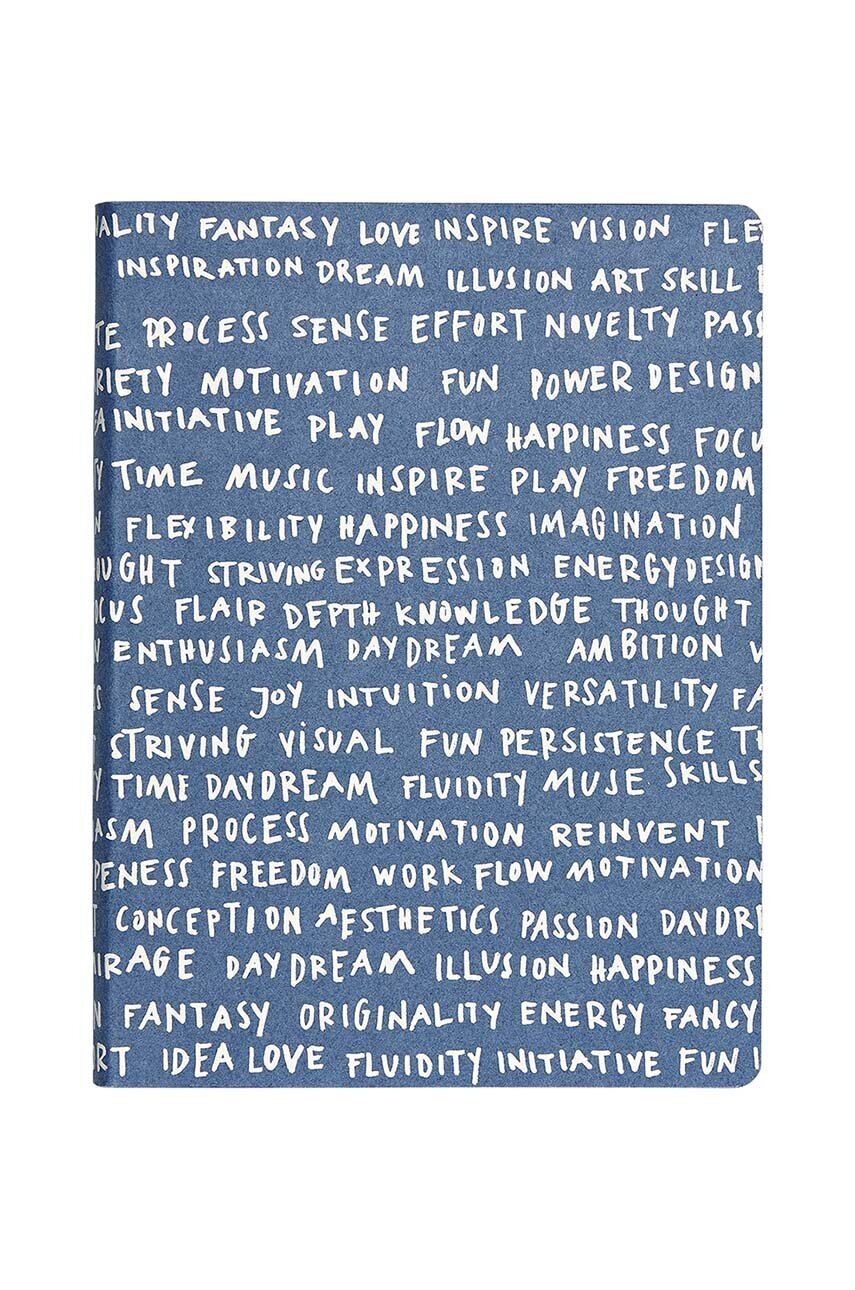 ALITY FANTASY LOVE INSPIRE VISION FLE
INSPIRATION DREAM ILLUSION ART SKILL
TE PROCESS SENSE EFFORT NOVELTY PASS
RIETY MOTIVATION FUN POWER DESIGN
EA INITIATIVE PLAY FLOW HAPPINESS FOCU
Y TIME MUSIC INSPIRE PLAY FREEDOM
N FLEXIBILITY HAPPINESS IMAGINATION
UGHT STRIVING EXPRESSION ENERGY DESIGN
CUS FLAIR DEPTH KNOWLEDGE THOUGHT
ENTHUSIASM DAYDREAM AMBITION V
S SENSE JOY INTUITION VERSATILITY FA
T STRIVING VISUAL FUN PERSISTENCE TI
Y TIME DAYDREAM FLUIDITY MUSE SKILLS
ASM PROCESS MOTIVATION REINVENT
PENESS FREEDOM WORK FLOW MOTIVATION
T CONCEPTION AESTHETICS PASSION DAYDRE
IRAGE DAYDREAM ILLUSION HAPPINESS
N FANTASY ORIGINALITY ENERGY FANCY
RT IDEA LOVE FLUIDITY INITIATIVE FUN I